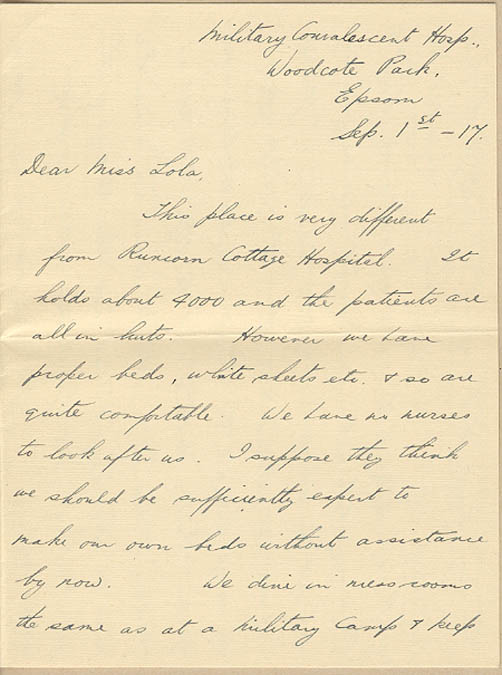 Military Convalescent Hosp.,
Woodcote Park,
Epsom
Sep. 1st – 17.
Dear Miss Lola,
This place is very different
from Runcorn Cottage Hospital. It
holds about 4000 and the patients are
all in huts. However we have
proper beds, white sheets etc. & so are
quite comfortable. We have no nurses
to look after us. I suppose they think
we should be sufficiently expert to
make our own beds without assistance
by now. We dine in mess rooms
the same as at a Military Camp & keep